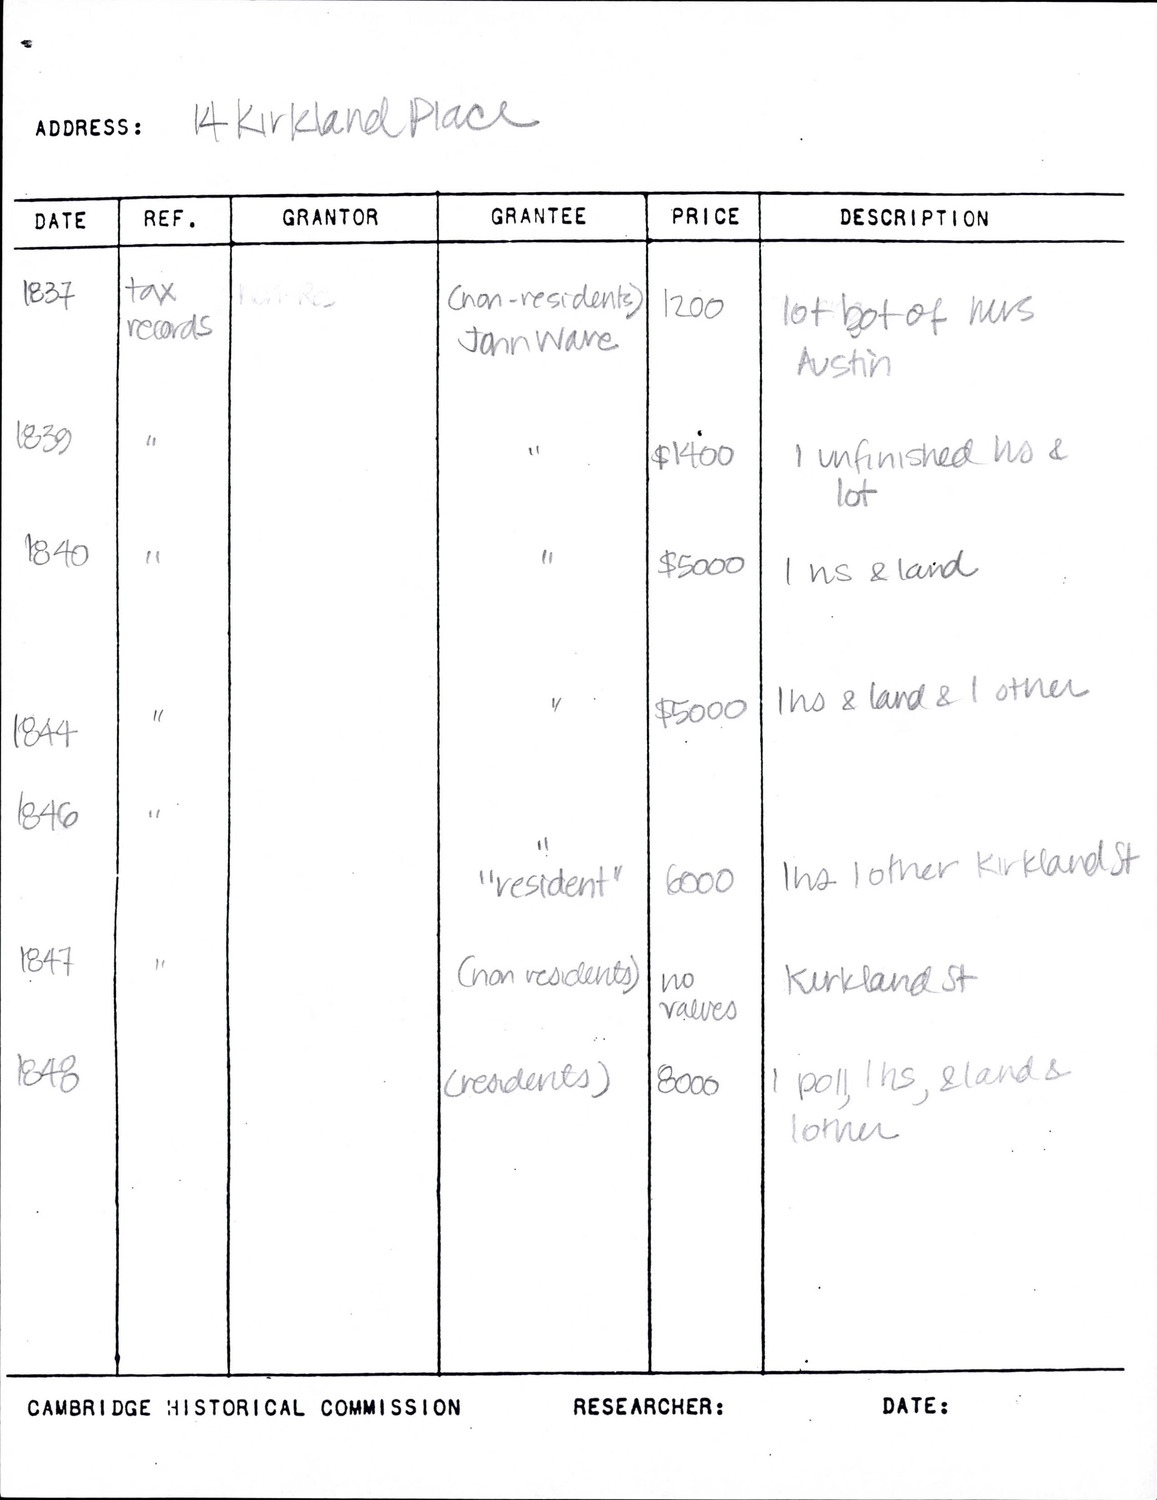 ADDRESS: 14 Kirkland Place
DATE REF. GRANTOR GRANTEE PRICE DESCRIPTION
1837 tax records (non-residents) John Ware 1200 lot bot of Mrs Austin
1839 " " $1400 1 unfinished hs & lot
1840 " " $5000 1 hs & land
1844 " " $5000 1 hs & land & 1 other
1846 " " "resident" 6000 1 hs 1 other Kirkland St
1847 " (non residents) no values Kirkland St
1848 (residents) 8000 1 poll, 1 hs, & land & 1 other
CAMBRIDGE HISTORICAL COMMISSION RESEARCHER: DATE: